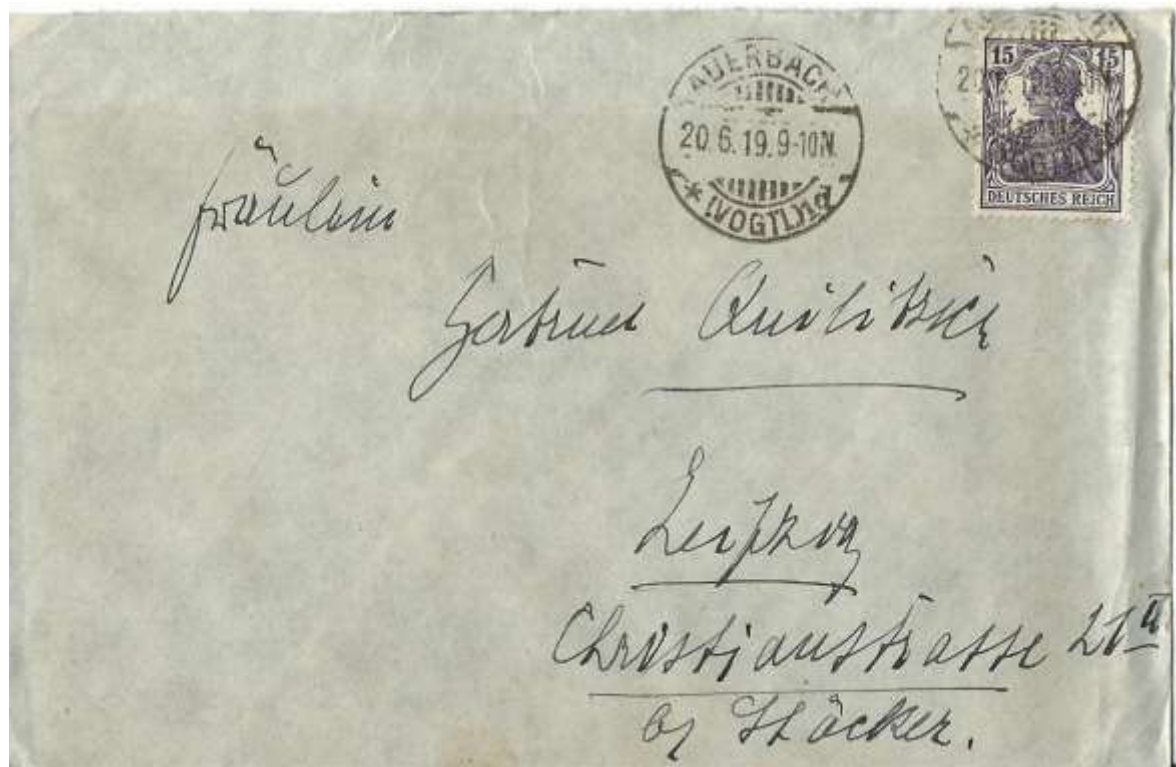 AUERBACH
20.6.19.9-10N.
* (VOGTL)1d
15 15
DEUTSCHES REICH
Fräulein
Quilitzsch
Leipzig
Christianstrasse 21 II
b/ Stöcker.